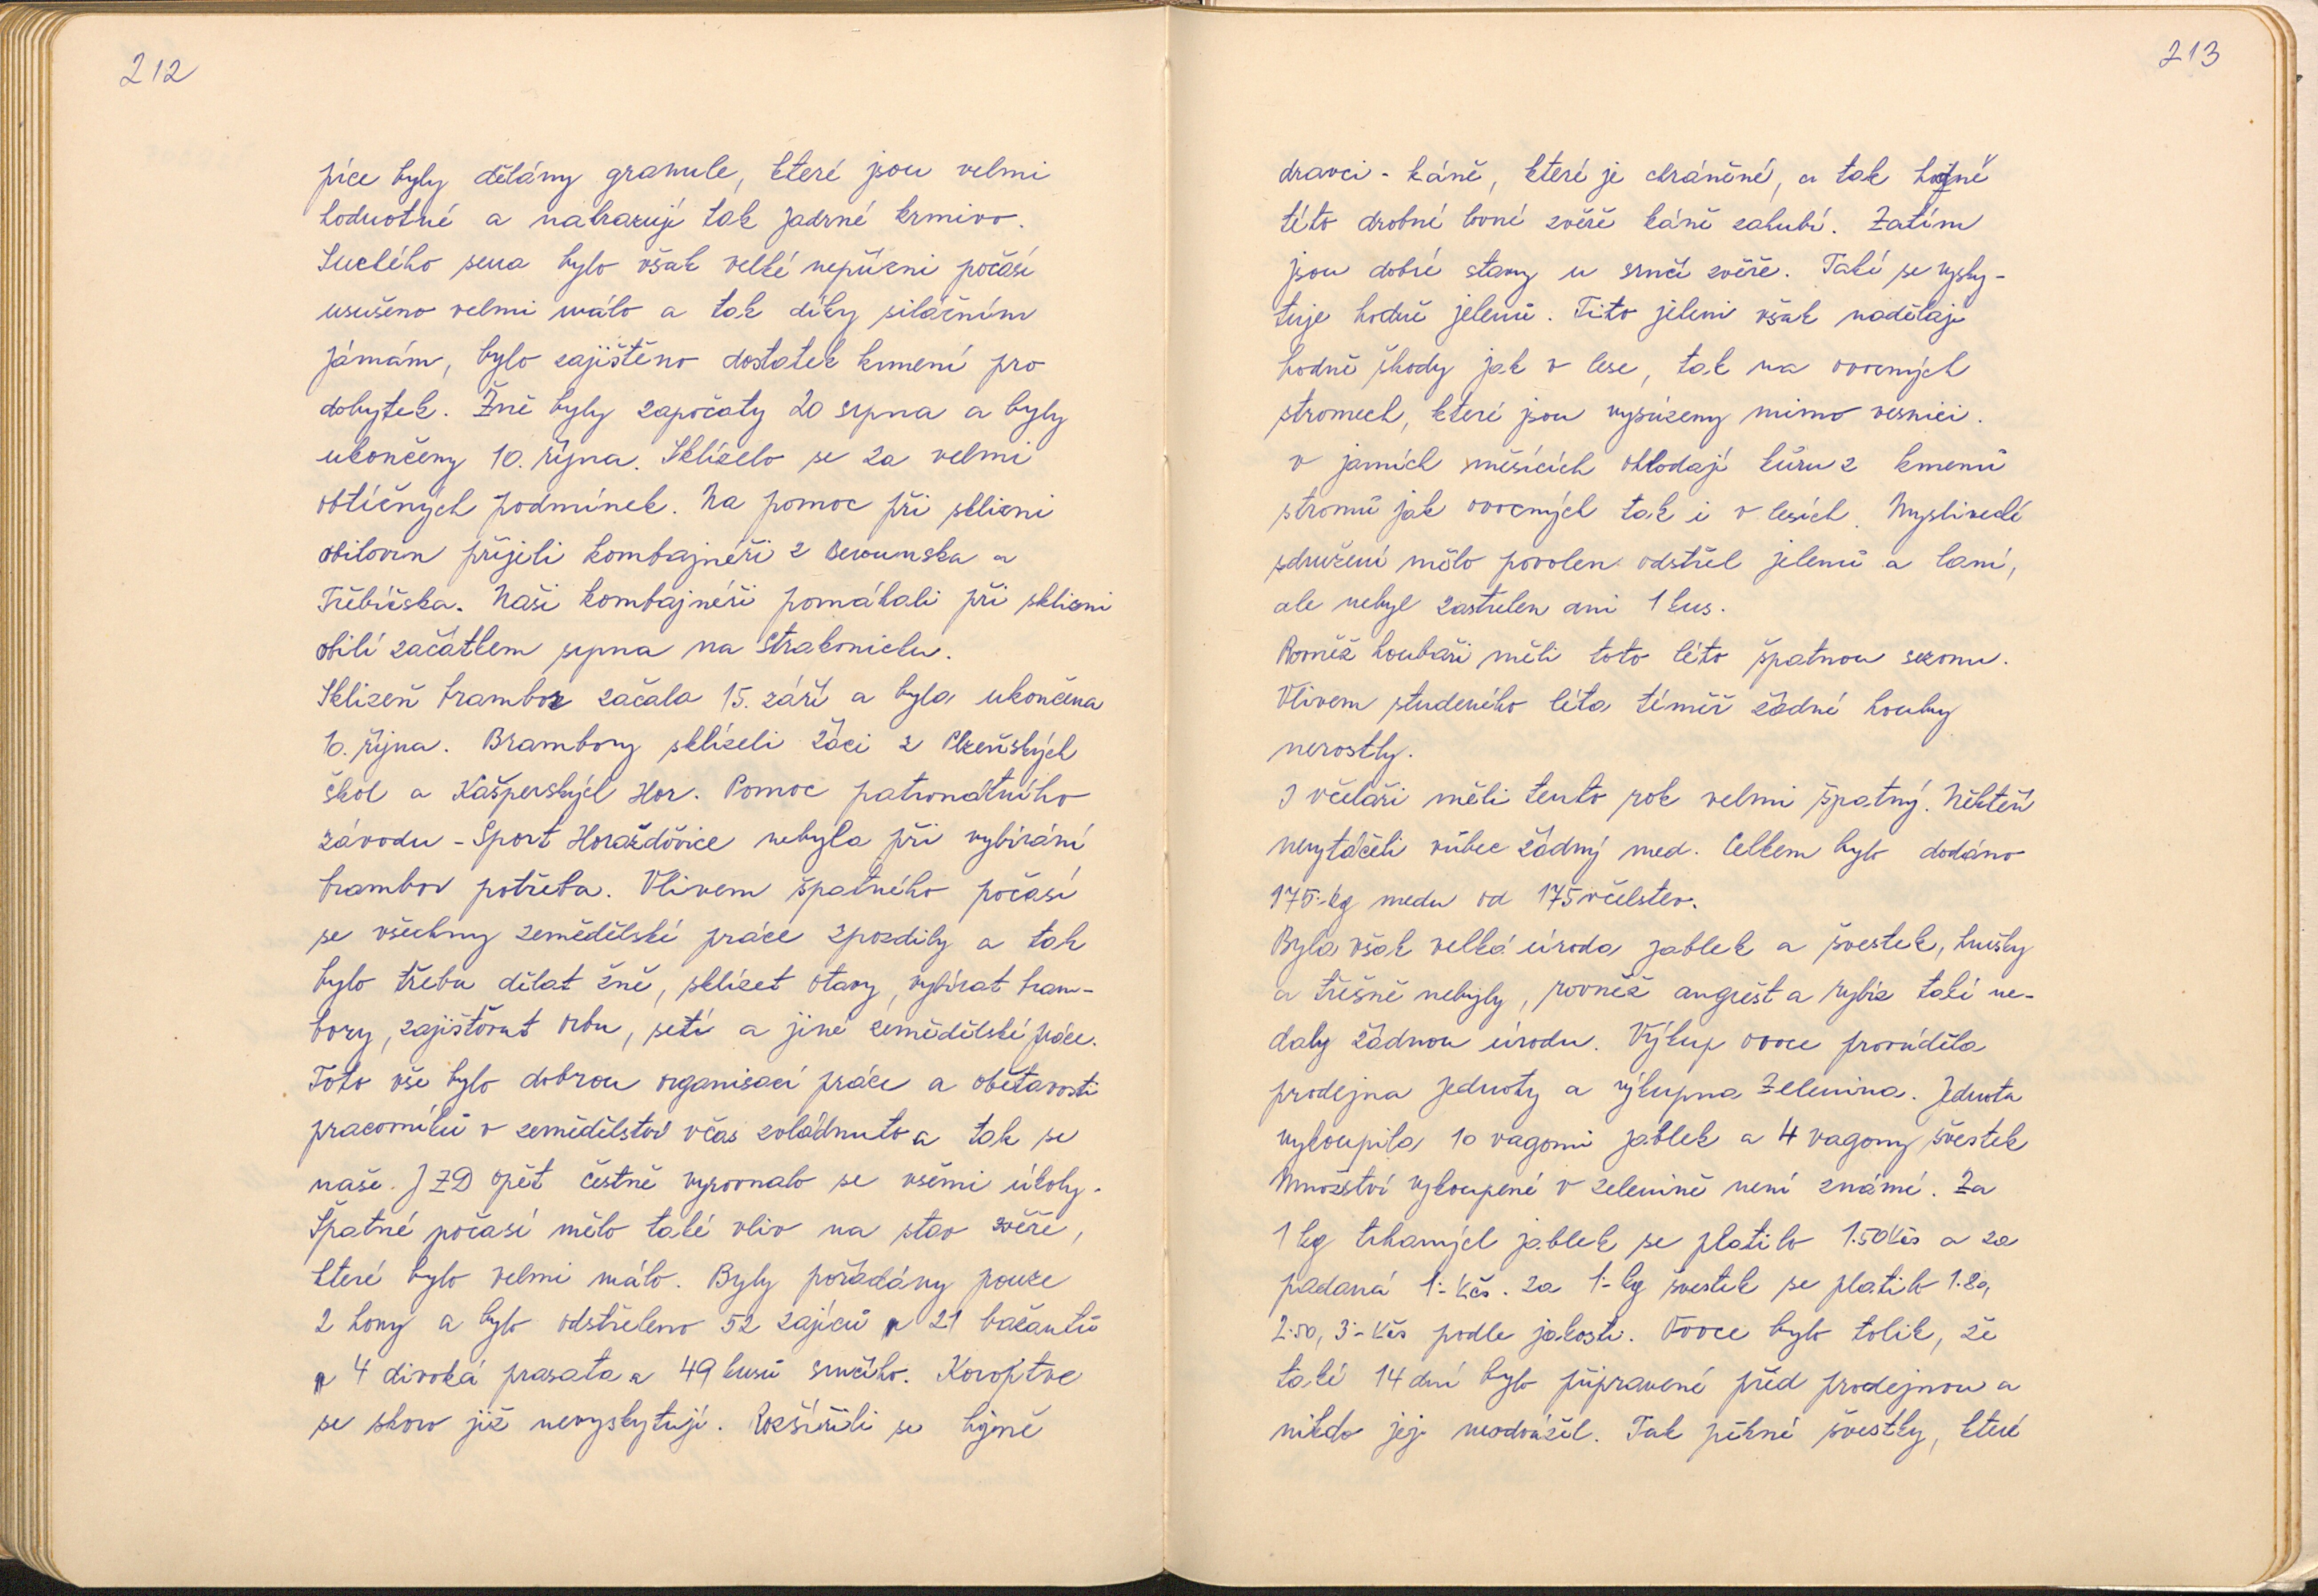 212
píce byly dělány granule, které jsou velmi
hodnotné a nahrazují tak jadrné krmivo.
Suchého sena bylo však velké nepřízni počasí
usušeno velmi málo a tak díky silážním
jámám, bylo zajištěno dostatek krmení pro
dobytek. Žně byly započaty 20 srpna a byly
ukončeny 10. října. Sklízelo se za velmi
obtížných podmínek. Na pomoc při sklizni
obilovin přijeli kombajnéři z Berounska a
Třebíčska. Naši kombajnéři pomáhali při sklizni
obilí začátkem srpna na Strakonicku.
Sklizeň brambor začala 15. září a byla ukončena
10. října. Brambory sklízeli žáci z Plzeňských
škol a Kašperských Hor. Pomoc patronátního
závodu - Sport Horažďovice nebyla při vybírání
brambor potřeba. Vlivem špatného počasí
se všechny zemědělské práce zpozdily a tak
bylo třeba dělat žně, sklízet otavy, vybírat bram-
bory, zajišťovat orbu, setí a jiné zemědělské práce.
Toto vše bylo dobrou organisací práce a obětavosti
pracovníků v zemědělství včas zvládnuto a tak se
naše JZD opět čestně vyrovnalo se všemi úkoly.
Špatné počasí mělo také vliv na stav zvěře,
které bylo velmi málo. Byly pořádány pouze
2 hony a bylo odstřeleno 52 zajíců a 21 bažantů
a 4 divoká prasata a 49 kusů srnčího. Koroptve
se skoro již nevyskytují. Rozšířili se hojně
213
dravci - káně, které je chráněné, a tak hojně
této drobné lovné zvěře káně zahubí. Zatím
jsou dobré stavy u srnčí zvěře. Také se vysky-
tuje hodně jelenů. Tito jeleni však nadělají
hodně škody jak v lese, tak na ovocných
stromech, které jsou vysázeny mimo vesnici.
v jarních měsících ohlodají kůru z kmenů
stromů jak ovocných tak i v lesích. Myslivecké
sdružení mělo povolen odstřel jelenů a laní,
ale nebyl zastřelen ani 1 kus.
Rovněž houbaři měli toto léto špatnou sezonu.
Vlivem studeného léta téměř žádné houby
nerostly.
I včelaři měli tento rok velmi špatný. Někteří
nevytáčeli vůbec žádný med. Celkem bylo dodáno
175.-kg medu od 175 včelstev.
Byla však velká úroda jablek a švestek, hrušky
a třešně nebyly, rovněž angrešt a rybíz také ne-
daly žádnou úrodu. Výkup ovoce prováděla
prodejna Jednoty a výkupna Zelenina. Jednota
vykoupila 10 vagonů jablek a 4 vagony švestek
Množství vykoupené v zelenině není známé. Za
1 kg trhaných jablek se platilo 1.50 Kčs a za
padaná 1.- Kčs. za 1.- kg švestek se platilo 1.80,
2.50, 3.- Kčs podle jakosti. Ovoce bylo tolik, že
také 14 dní bylo připravené před prodejnou a
nikdo jej neodvážel. Tak pěkné švestky, které